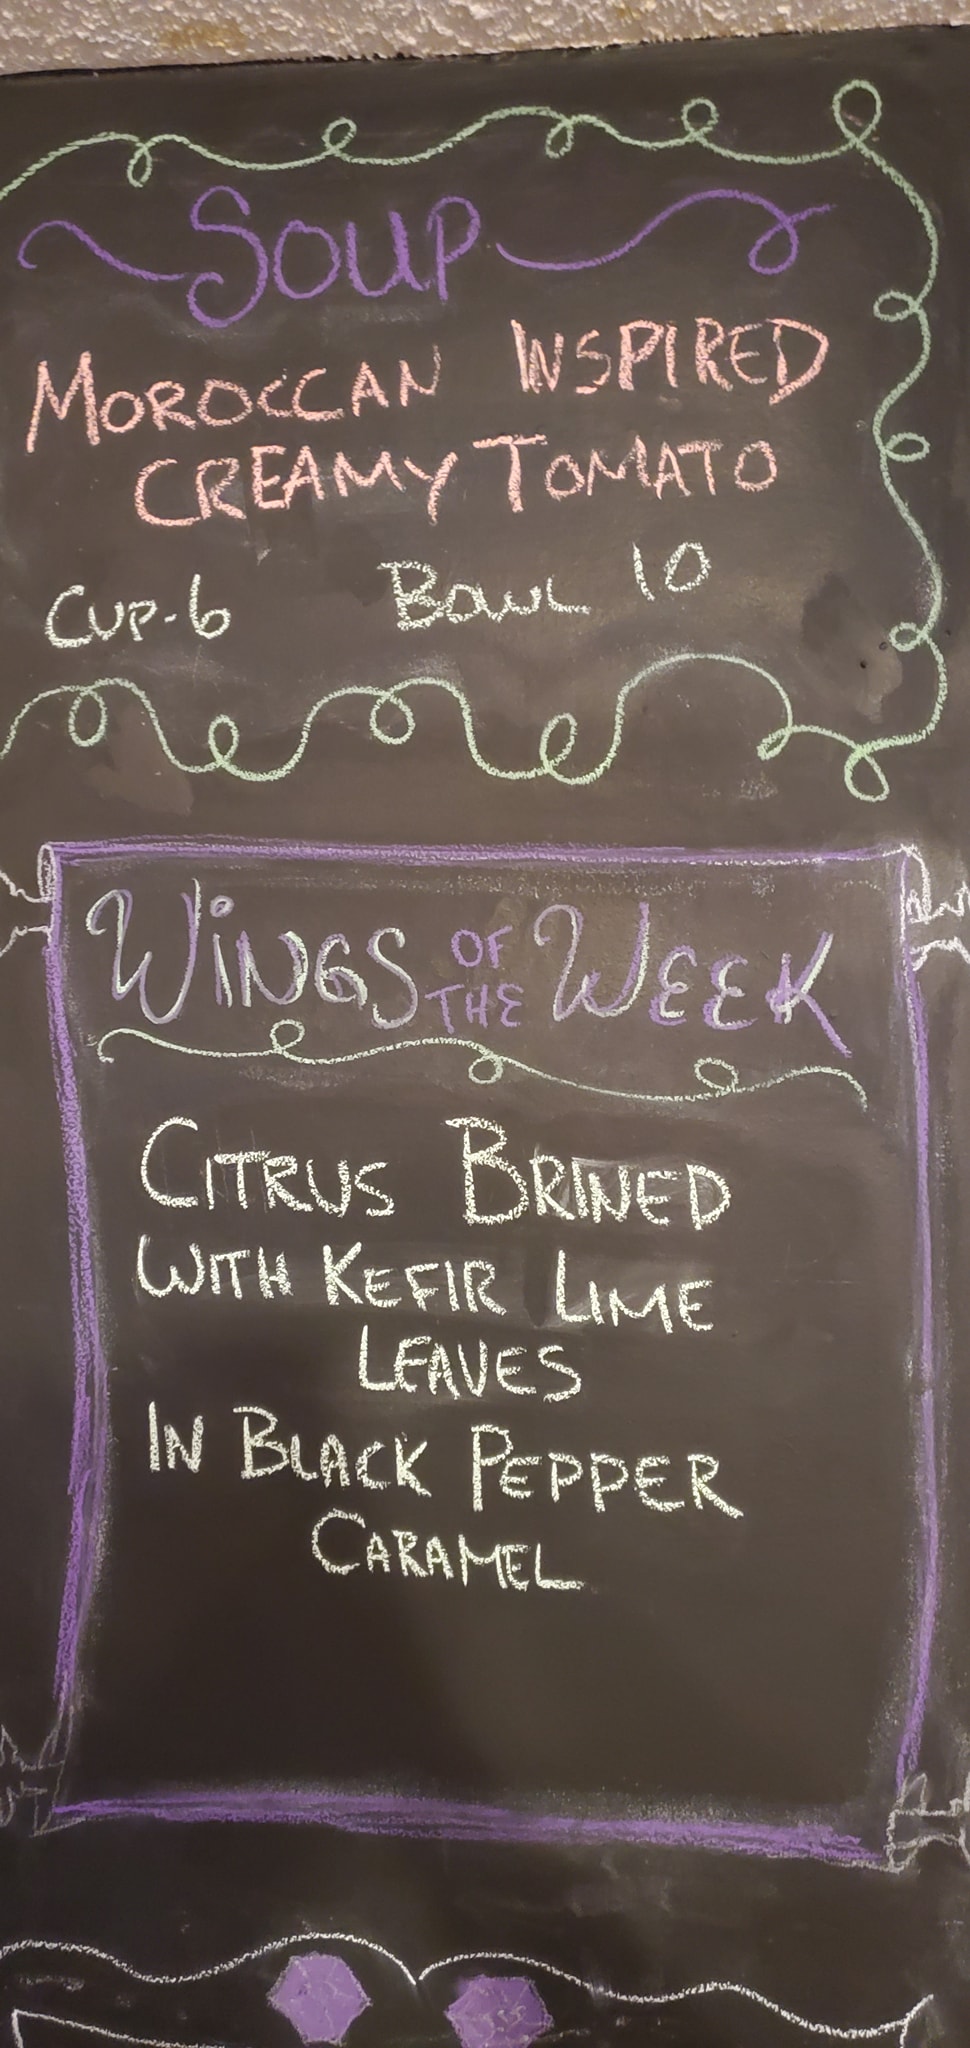 SOUP
MOROCCAN INSPIRED
CREAMY TOMATO
CUP-6 BOWL 10
WINGS OF THE WEEK
CITRUS BRINED
WITH KEFIR LIME
LEAVES
IN BLACK PEPPER
CARAMEL